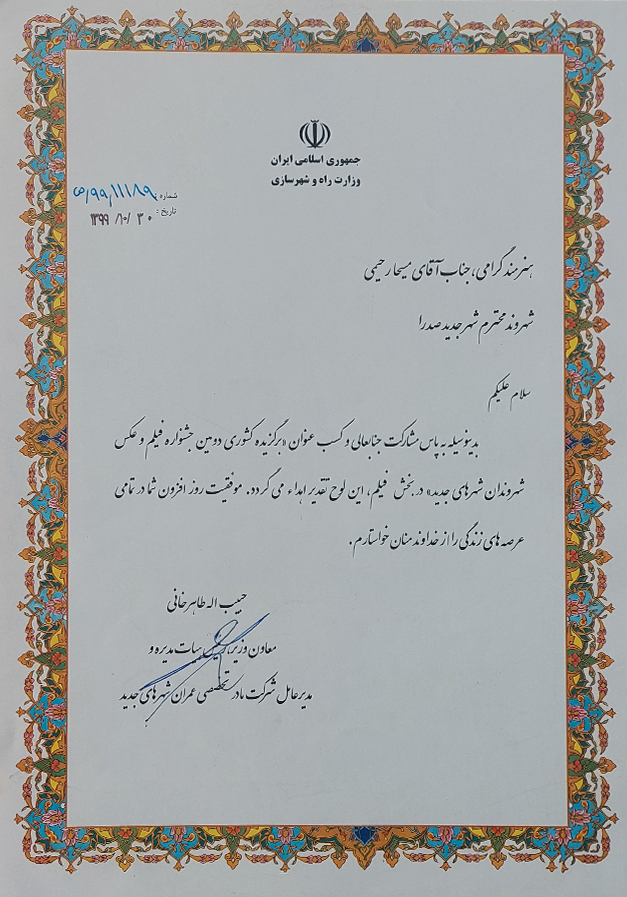 جمهوری اسلامی ایران
وزارت راه و شهرسازی
شماره:
تاریخ: ۱۳۹۹/۱۰/۳۰
هنرمند گرامی، جناب آقای مسیحا رحیمی
شهروند محترم شهر جدید صدرا
سلام علیکم
بدینوسیله به پاس مشارکت جنابعالی و کسب عنوان «برگزیده کشوری دومین جشنواره فیلم و عکس
شهروندان شهرهای جدید» در بخش فیلم، این لوح تقدیر اهداء می گردد. موفقیت روز افزون شما در تمامی
عرصه های زندگی را از خداوند منان خواستارم.
حبیب اله طاهرخانی
معاون وزیر، رئیس هیات مدیره و
مدیرعامل شرکت مادر تخصصی عمران شهرهای جدید